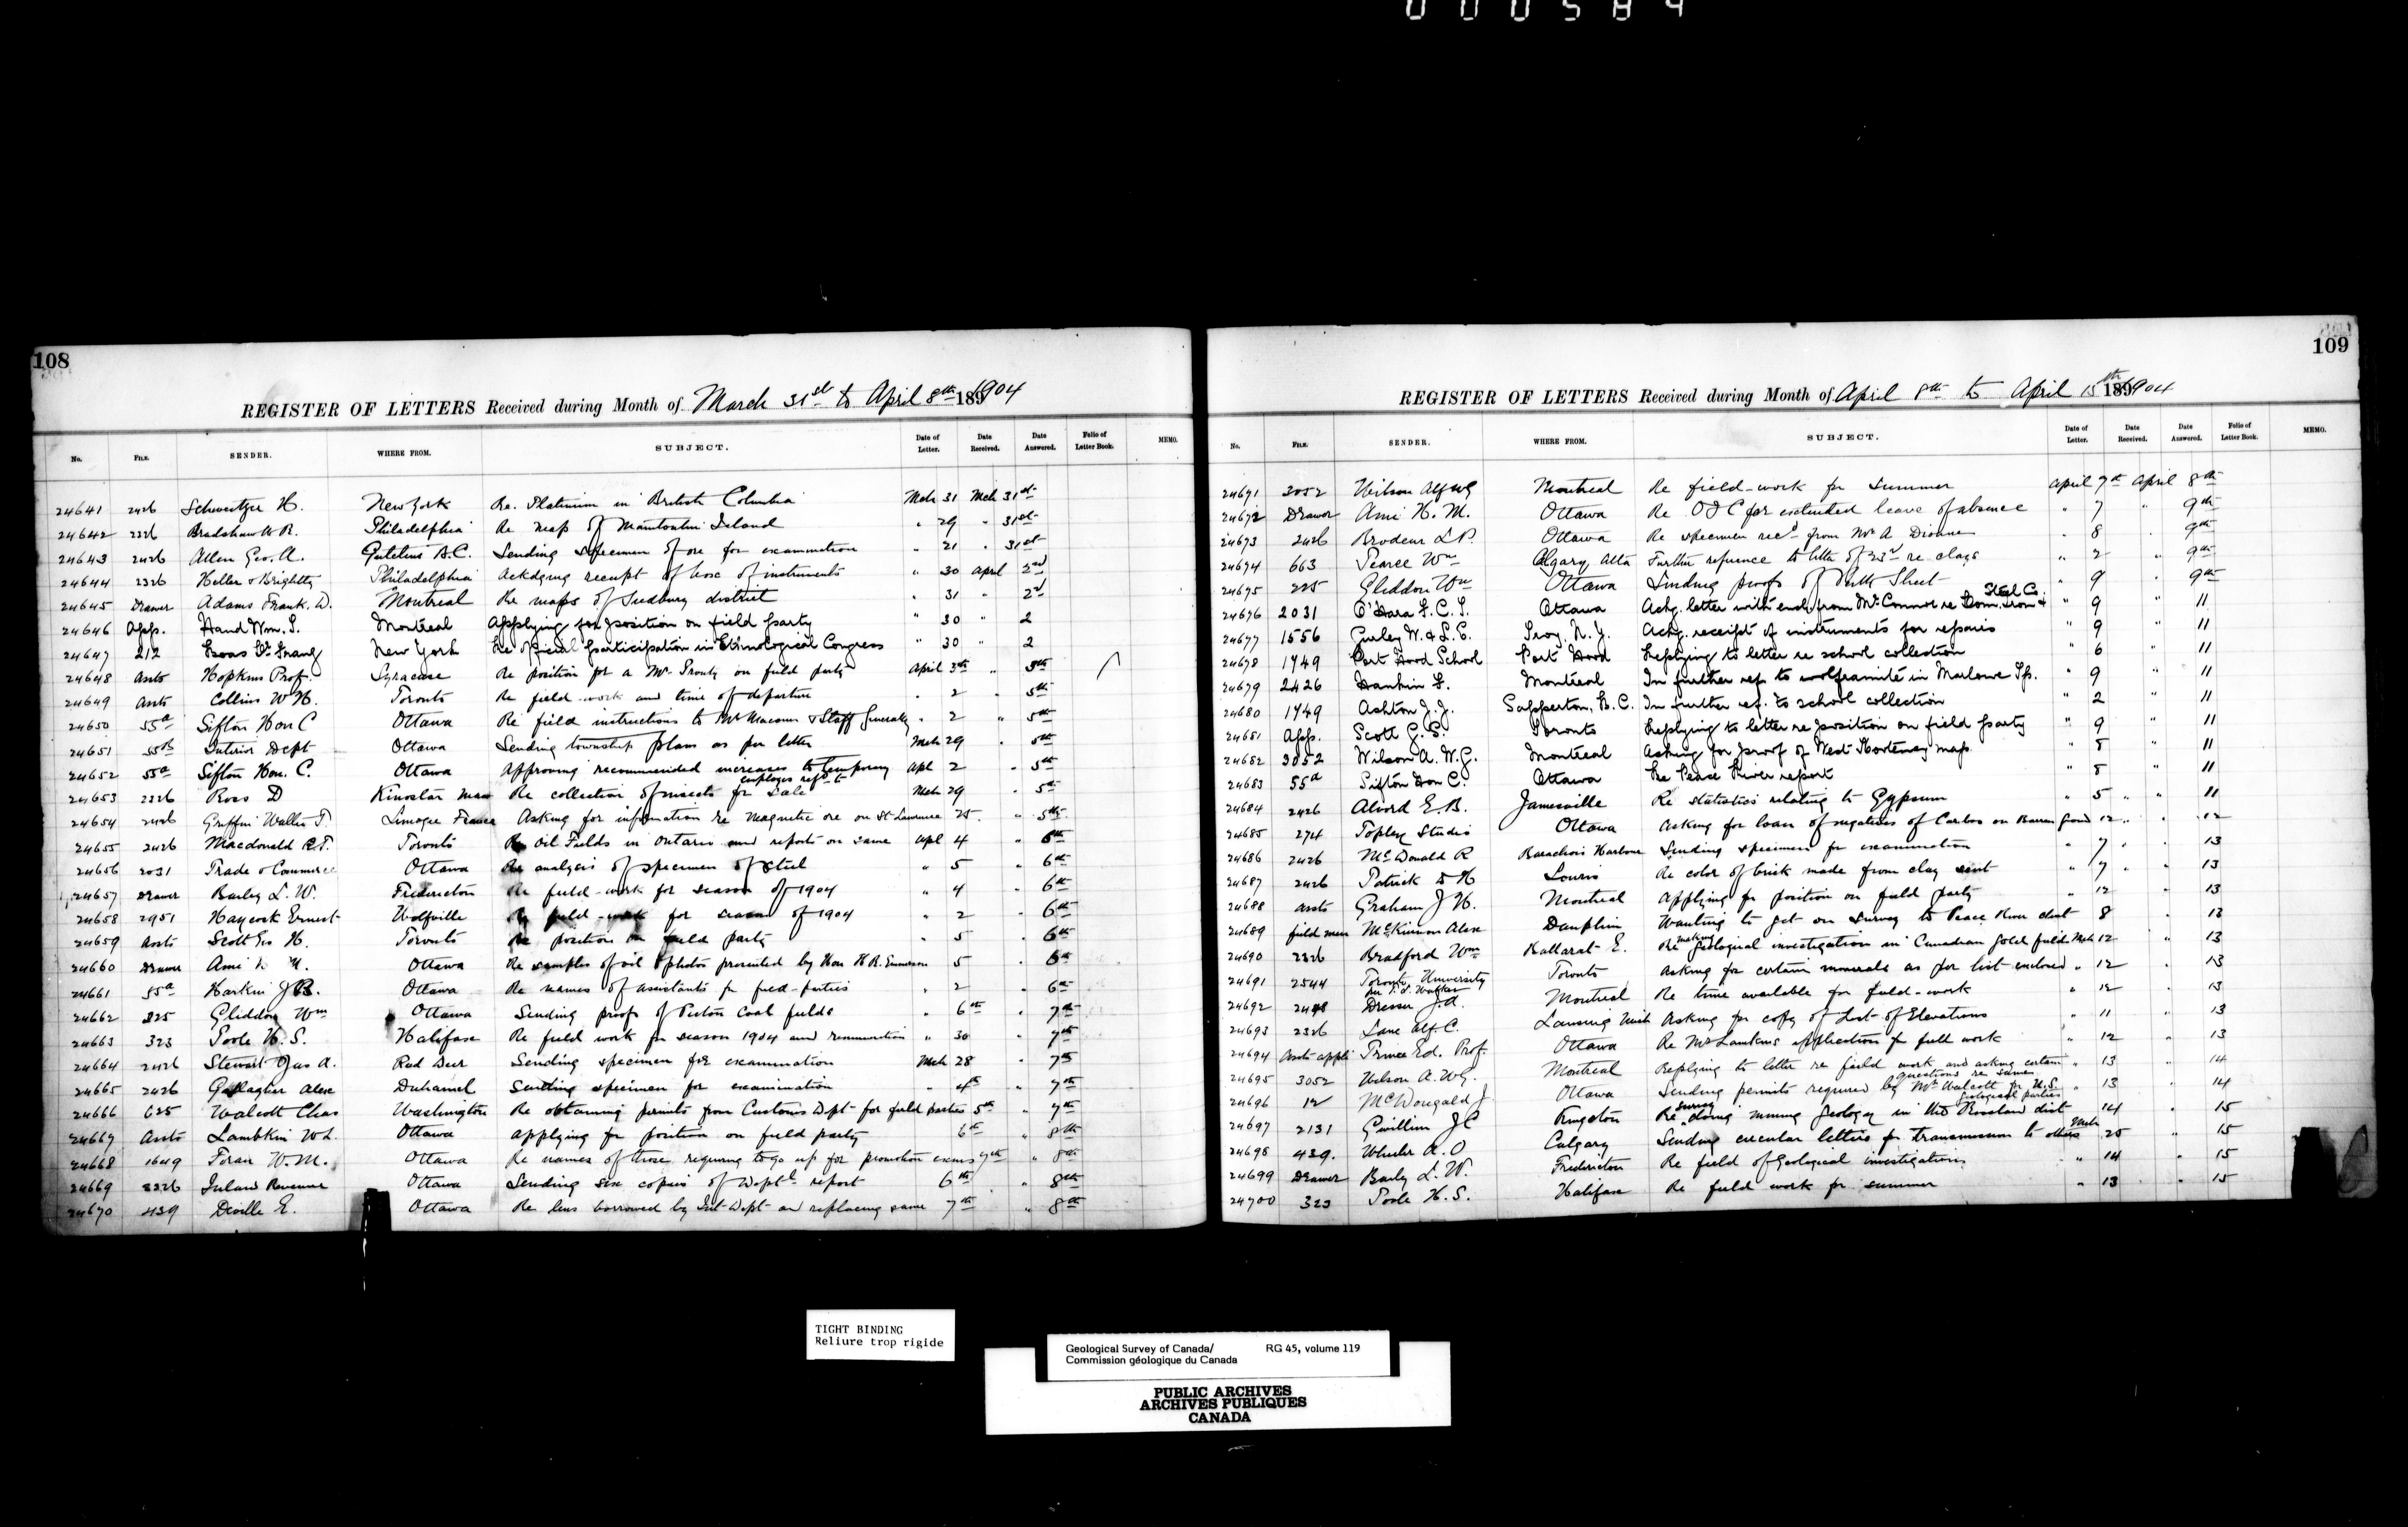 000584
108
REGISTER OF LETTERS Received during Month of March 31st to April 8th 1904
No. FILE. SENDER. WHERE FROM. SUBJECT. Date of Letter. Date Received. Date Answered. Folio of Letter Book. MEMO.
24641 2426 Schweitzer H. New York Re. Platinum in British Columbia Mch 31 Mch 31st
24642 2326 Bradshaw W R. Philadelphia Re map of Manitoulin Island " 29 " 31st
24643 2426 Allen Geo. A. B.C. Sending specimen of ore for examination " 21 " 31st
24644 2326 Heller & Brightly Philadelphia Ackdging receipt of box of instruments " 30 April 2nd
24645 Drawer Adams Frank. D. Montreal Re maps of Sudbury district " 31 " 2nd
24646 App. Hand Wm. S. Montreal Applying for position on field party " 30 " 2
24647 212 Boas Dr. Franz New York Re official participation in Ethnological Congress " 30 " 2
24648 Assts Hopkins Prof. Syracuse Re position for a Mr. Prouty on field party April 3rd " 5th
24649 Assts Collins W H. Toronto Re field-work and time of departure " 2 5th
24650 55a Sifton Hon C Ottawa Re field instructions to Mr Macoun & Staff Generally " 2 " 5th
24651 55B Interior Dept Ottawa Sending township plans as per letter Mch 29 " 5th
24652 55a Sifton Hon. C. Ottawa Approving recommended increases to temporary employes Apl 2 " 5th
24653 2326 Ross D Kinostar Man Re collection of insects for sale Mch 29 " 5th
24654 2426 Griffin Walter T. Limoges France Asking for information re Magnetic ore on St Lawrence 25 " 5th
24655 2426 Macdonald C.T. Toronto Re Oil Fields in Ontario and reports on same Apl 4 " 6th
24656 2031 Trade & Commerce Ottawa Re analysis of specimen of Steel " 5 " 6th
24657 Drawer Bailey L. W. Fredericton Re field-work for season of 1904 " 4 " 6th
24658 2951 Haycock Ernest Wolfville Re field-work for season of 1904 " 2 " 6th
24659 Assts Scott Geo H. Toronto Re position on field party " 5 " 6th
24660 Drawer Ami H. M. Ottawa Re samples of oil & photos presented by Hon H R. Emmerson 5 " 6th
24661 55a Harkin J B. Ottawa Re names of assistants for field-parties " 2 " 6th
24662 225 Gliddon Wm Ottawa Sending proofs of Pictou Coal fields " 6th " 7th
24663 323 Poole H. S. Halifax Re field work for season 1904 and remuneration " 30 " 7th
24664 2426 Stewart Jas A. Red Deer Sending specimen for examination Mch 28 " 7th
24665 2426 Gallagher Alex Duhamel Sending specimen for examination " 4th " 7th
24666 625 Walcott Chas Washington Re obtaining permits from Customs Dept for field parties 5th " 7th
24667 Assts Lambkin W L. Ottawa Applying for position on field party 6th " 8th
24668 1649 Foran W. M. Ottawa Re names of those requiring to go up for promotion exams 7th " 8th
24669 2326 Inland Revenue Ottawa Sending six copies of Deptl report 6th " 8th
24670 439 Deville E. Ottawa Re lens borrowed by Int Dept and replacing same 7th " 8th
109
REGISTER OF LETTERS Received during Month of April 8th to April 15th 1904
No. FILE. SENDER. WHERE FROM. SUBJECT. Date of Letter. Date Received. Date Answered. Folio of Letter Book. MEMO.
24671 3052 Wilson Alf W G Montreal Re field-work for summer April 7th April 8th
24672 Drawer Ami H. M. Ottawa Re O I C for extended leave of absence " 7 " 9th
24673 2426 Brodeur L P. Ottawa Re specimen recd from Mr A Dionne " 8 " 9th
24674 663 Pearce Wm Calgary Alta Further reference to letter of 23rd re clays " 2 " 9th
24675 225 Gliddon Wm Ottawa Sending proofs of Sheet " 9 " 9th
24676 2031 O'Hara F. C. T. Ottawa Ackg. letter with encl. from Mr. Connor re Dom. Iron & Steel Co. " 9 " 11
24677 1556 Gurley W. & L. E. Troy, N. Y. Ackg. receipt of instruments for repairs " 9 " 11
24678 1749 Port Hood School Port Hood Replying to letter re school collection " 6 11
24679 2426 Hankin F. Montreal In further ref. to wolframite in Marlowe Tp. " 9 " 11
24680 1749 Ashton J. J. Sapperton, B. C. In further ref. to school collection " 2 " 11
24681 App. Scott G. S. Toronto Replying to letter re position on field party " 9 " 11
24682 3052 Wilson A. W. G. Montreal Asking for proof of West Kootenay map " 5 " 11
24683 55a Sifton Hon C. Ottawa Re Peace River report " 5 " 11
24684 2426 Alvord E. B. Jamesville Re statistics relating to Gypsum " 5 " 11
24685 274 Topley Studio Ottawa Asking for loan of negatives of Caribou on Barren Ground 12 " 12
24686 2426 McDonald R Barachois Harbour Sending specimen for examination " 7 " 13
24687 2426 Patrick Souris Re color of brick made from clay sent " 7 " 13
24688 Assts Graham J H. Montreal Applying for position on field party " 12 " 13
24689 field men McKinnon Alex Dauphin Wanting to get on survey to Peace River dist 8 " 13
24690 2326 Bradford Wm Ballarat E. Re making geological investigation in Canadian gold fields Mch 12 " 13
24691 2544 Toronto University per T. L. Walker Toronto Asking for certain minerals as per list enclosed " 12 " 13
24692 Dresser J. A. Montreal Re time available for field-work " 12 " 13
24693 2326 Lane Alf C. Lansing Mich Asking for copy of List of Elevations " 11 " 13
24694 Assts appli Prince Ed. Prof. Ottawa Re Mr Lamkins application for field work " 12 " 13
24695 3052 Wilson A. W G. Montreal Replying to letter re field work and asking certain questions re same " 13 " 14
24696 12 McDougald J Ottawa Sending permits required by Mr Walcott for U.S. geological parties " 13 " 14
24697 2131 Gwillim J C Kingston Re doing mining geology in the Rossland dist 14 " 15
24698 439. Wheeler A. O Calgary Sending circular letters for transmission to others Mch 25 " 15
24699 Drawer Bailey L. W. Fredericton Re field of Geological investigations " 14 " 15
24700 323 Poole H. S. Halifax Re field work for summer " 13 " 15
TIGHT BINDING
Reliure trop rigide
Geological Survey of Canada/ RG 45, volume 119
Commission géologique du Canada
PUBLIC ARCHIVES
ARCHIVES PUBLIQUES
CANADA